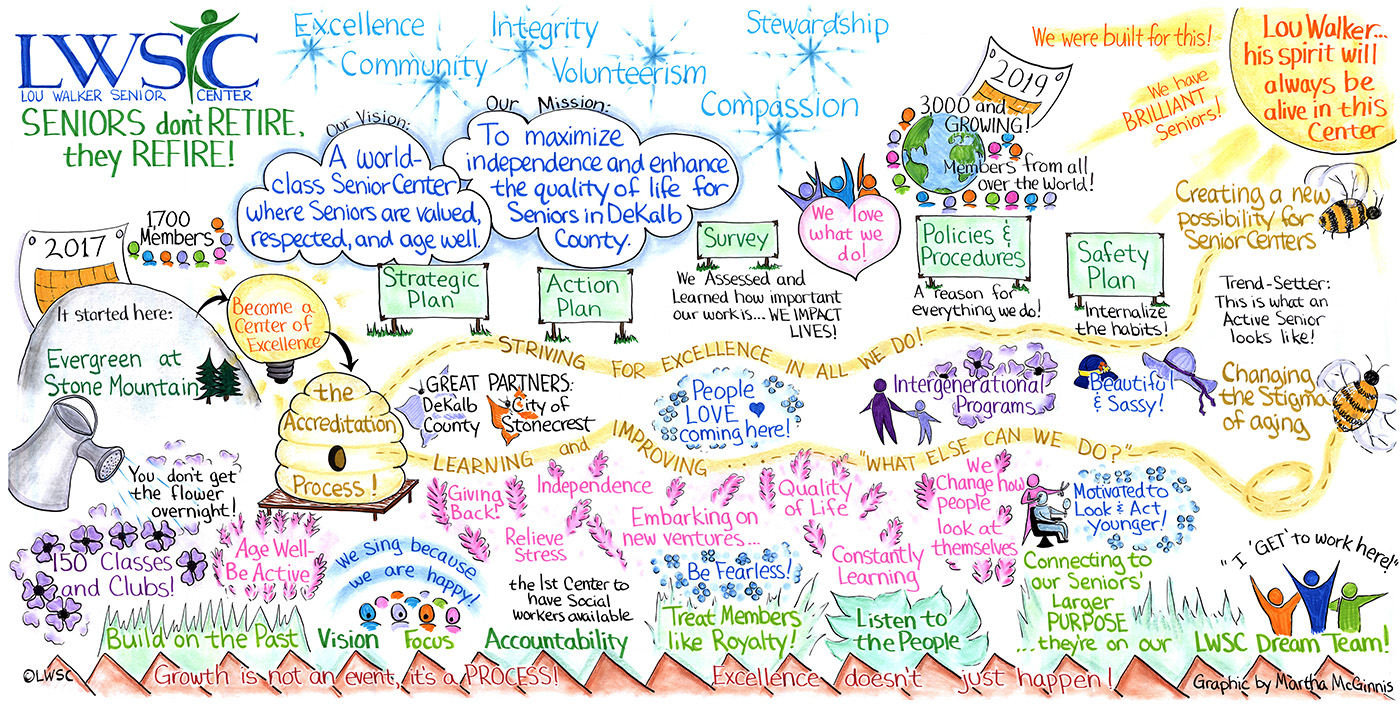 LWSC
LOU WALKER SENIOR CENTER
SENIORS don't RETIRE,
they REFIRE!
Excellence
Integrity
Community
Volunteerism
Stewardship
Compassion
Our Vision:
A world-
class Senior Center
where Seniors are valued,
respected, and age well.
Our Mission:
To maximize
independence and enhance
the quality of life for
Seniors in DeKalb
County.
2019
3000 and
GROWING!
Members from all
over the World!
We were built for this!
We have
BRILLIANT
Seniors!
Lou Walker...
his spirit will
always be
alive in this
Center
2017
1700
Members
It started here:
Evergreen at
Stone Mountain
Become a
Center of
Excellence
Strategic
Plan
Action
Plan
Survey
We Assessed and
Learned how important
our work is... WE IMPACT
LIVES!
We love
what we
do!
Policies &
Procedures
A reason for
everything we do!
Safety
Plan
Internalize
the habits!
Creating a new
possibility for
Senior Centers
Trend-Setter:
This is what an
Active Senior
looks like!
Changing
the Stigma
of aging
STRIVING FOR EXCELLENCE IN ALL WE DO!
the
Accreditation
Process!
GREAT PARTNERS:
DeKalb
County
City of
Stonecrest
People
LOVE
coming here!
Intergenerational
Programs
Beautiful
& Sassy!
LEARNING and IMPROVING... "WHAT ELSE CAN WE DO?"
You don't get
the flower
overnight!
150 Classes
and Clubs!
Age Well-
Be Active
We sing because
we are happy!
Giving
Back!
Independence
Relieve
Stress
Embarking on
new ventures...
Quality
of Life
Constantly
Learning
We
Change how
people
look at
themselves
Motivated to
Look & Act
younger!
the 1st Center to
have Social
workers available
Be Fearless!
Connecting to
our Seniors'
Larger
PURPOSE
...they're on our
"I 'GET' to work here!"
Build on the Past
Vision
Focus
Accountability
Treat Members
like Royalty!
Listen to
the People
LWSC Dream Team!
©LWSC
Growth is not an event, it's a PROCESS!
Excellence doesn't just happen!
Graphic by Martha McGinnis